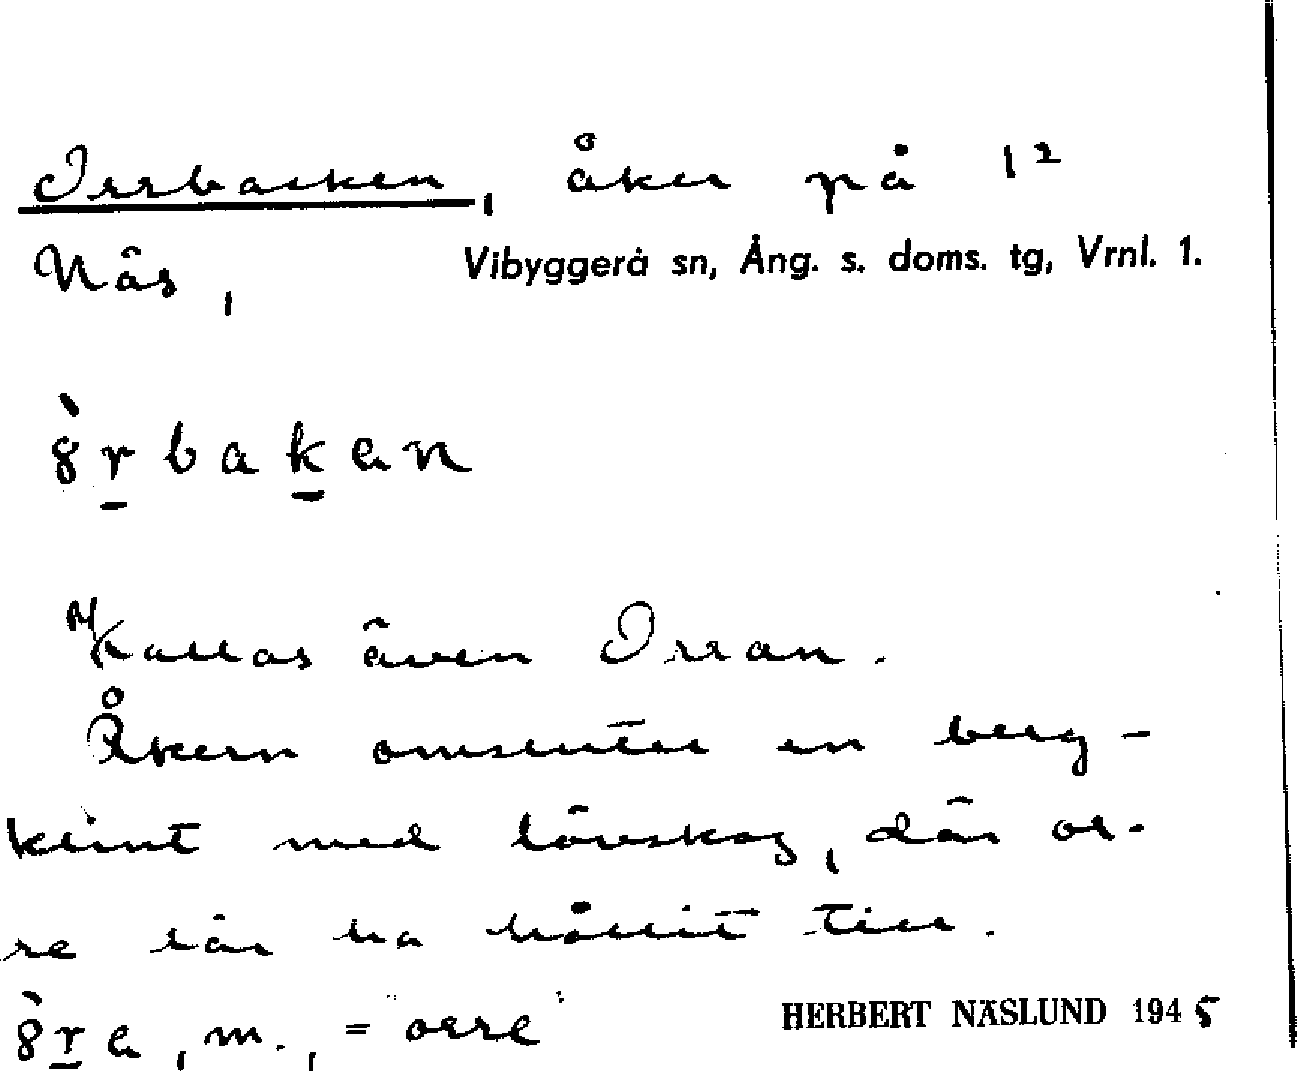 Orrbacken, åker på 1²
Näs, Vibyggerå sn, Ång. s. doms. tg, Vrnl. 1.
ò̱rbaḵen
Kallas även Orran.
Åkern omsluter en berg-
klint med lövskog, där or-
re lär ha hållit till.
e, m., = "orre"
HERBERT NÄSLUND 1945